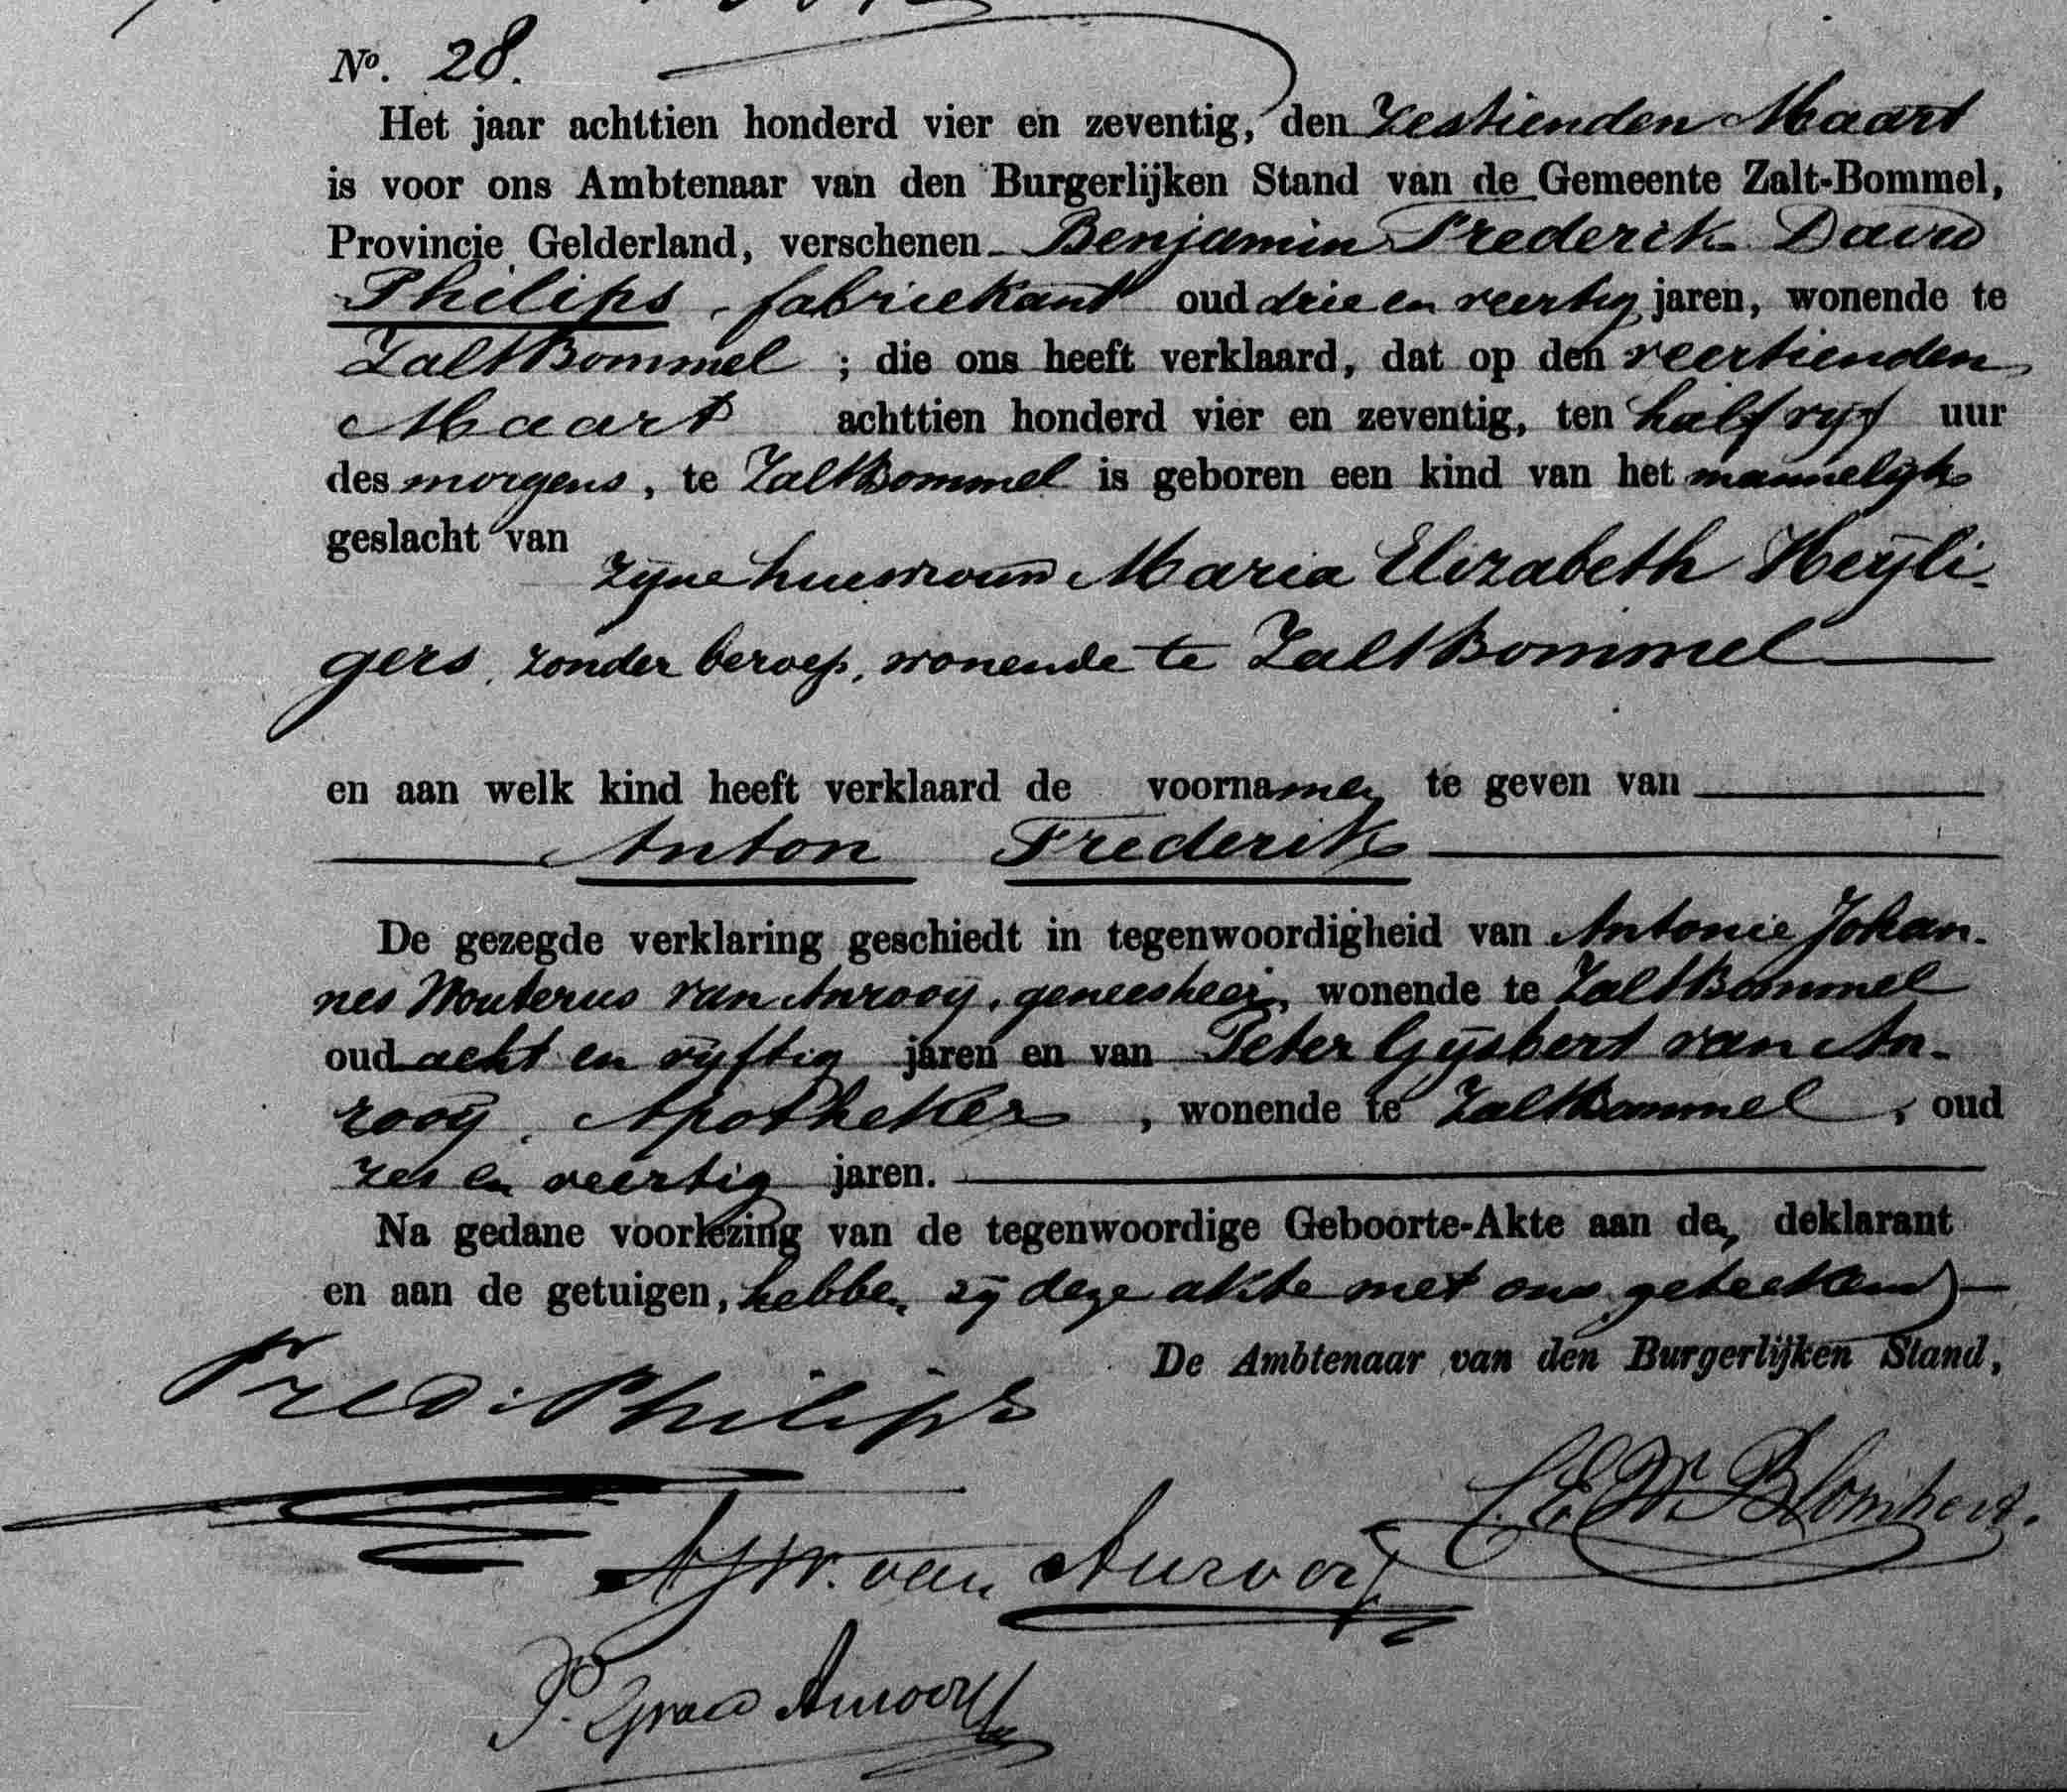 No. 28.
Het jaar achttien honderd vier en zeventig, den Zestienden Maart
is voor ons Ambtenaar van den Burgerlijken Stand van de Gemeente Zalt-Bommel,
Provincie Gelderland, verschenen Benjamin Frederik David
Philips, fabriekant oud drie en veertig jaren, wonende te
ZaltBommel ; die ons heeft verklaard, dat op den veertienden
Maart achttien honderd vier en zeventig, ten half vijf uur
des morgens, te ZaltBommel is geboren een kind van het mannelijk
geslacht van
zijne huisvrouw Maria Elizabeth Heyli-
gers, zonder beroep, wonende te ZaltBommel
en aan welk kind heeft verklaard de voornamen te geven van
Anton Frederik
De gezegde verklaring geschiedt in tegenwoordigheid van Antonie Johan-
nes Wouterus van Anrooy, geneesheer, wonende te ZaltBommel
oud acht en vijftig jaren en van Peter Gijsbert van An-
rooy, Apotheker, wonende te ZaltBommel, oud
zes en veertig jaren.
Na gedane voorlezing van de tegenwoordige Geboorte-Akte aan den deklarant
en aan de getuigen, hebben zij deze akte met ons geteekend
De Ambtenaar van den Burgerlijken Stand,
Fred: Philips
Blomhert.
AJW. van Anrooy
P. G van Anrooy